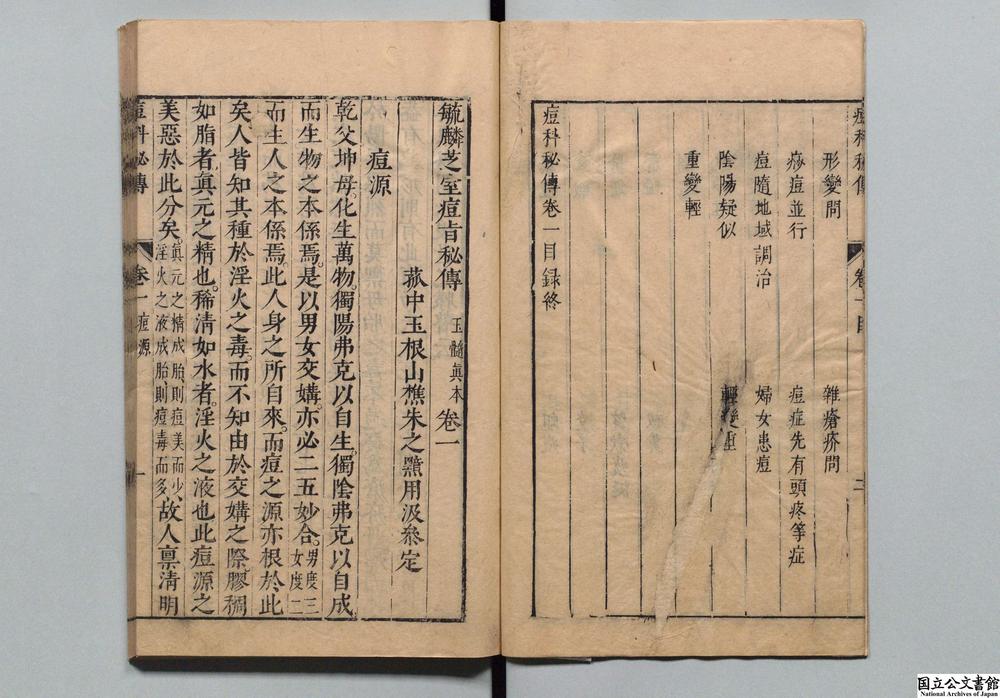 痘科秘傳 卷一目 二
形變問 雜瘡疥問
痧痘並行 痘症先有頭疼等症
痘隨地域調治 婦女患痘
陰陽疑似 輕變重
重變輕
痘科秘傳卷一目録終
毓麟芝室痘旨秘傳 玉髓眞本 卷一
菰中玉根山樵朱之黯用汲叅定
痘源
乾父坤母。化生萬物。獨陽弗克以自生。獨陰弗克以自成
而生物之本係焉。是以男女交媾。亦必二五妙合。男度三女度二
而生人之本係焉。此人身之所自來。而痘之源亦根於此
矣。人皆知其種於淫火之毒。而不知由於交媾之際。膠稠
如脂者。眞元之精也。稀清如水者。淫火之液也。此痘源之
美惡。於此分矣。眞元之精成胎。則痘美而少。淫火之液成胎。則痘毒而多。故人禀清明
痘科秘傳 卷一 痘源 一
国立公文書館
National Archives of Japan